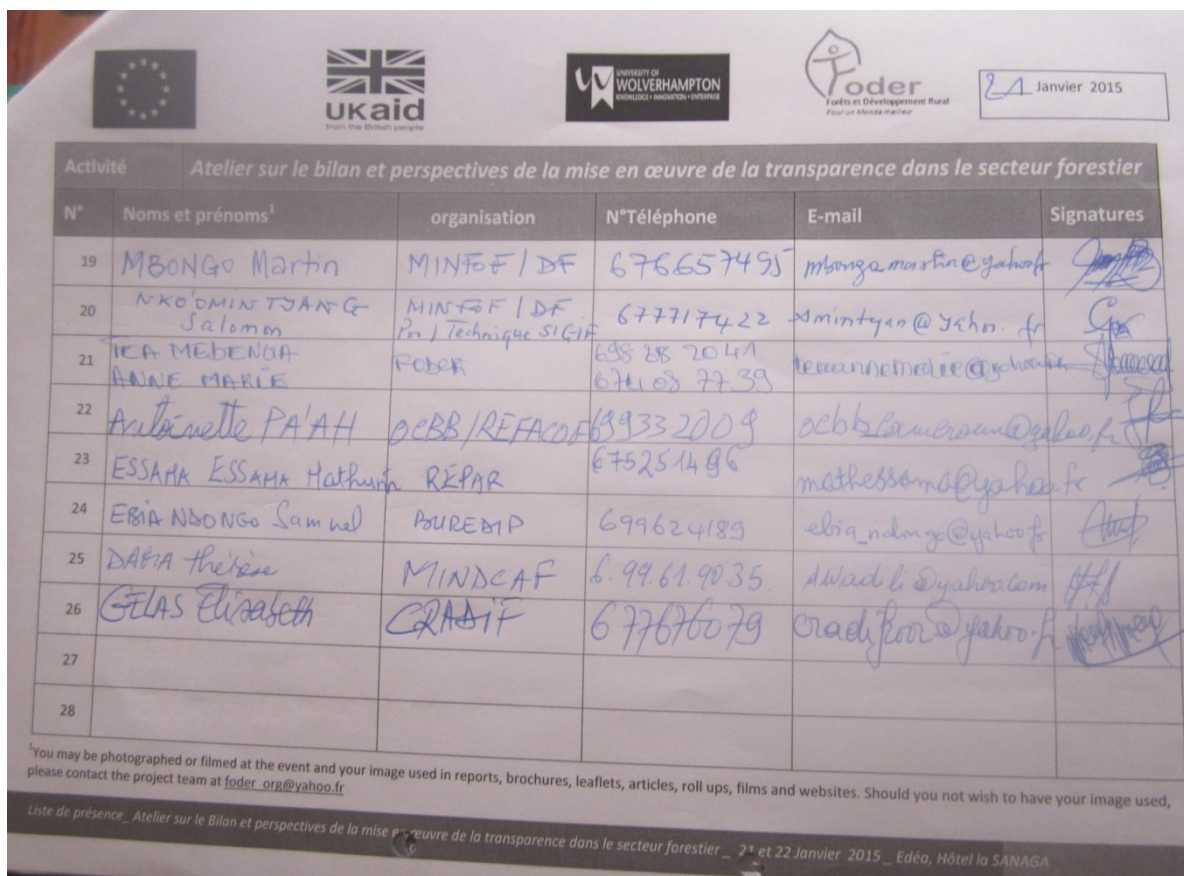 UKaid
from the British people
UNIVERSITY OF
WOLVERHAMPTON
KNOWLEDGE • INNOVATION • ENTERPRISE
Foder
Forêts et Développement Rural
Pour un Monde meilleur
21 Janvier 2015
Activité Atelier sur le bilan et perspectives de la mise en œuvre de la transparence dans le secteur forestier
N° Noms et prénoms¹ organisation N°Téléphone E-mail Signatures
19 MBONGO Martin MINFOF / DF 676657495 mbongamartin@yahoo.fr
20 NKO'OMINTYANG Salomon MINFOF / DF Technique SIGIF 677717422 smintyan@yahoo.fr
21 TCA MEDENGA ANNE MARIE FODER 698 28 2041 674 08 77 39
22 Antoinette PA'AH OCBB/REFACOF 699332009 ocbbcameroun@yahoo.fr
23 ESSAMA ESSAMA Mathurin REPAR 675251496 mathessama@yahoo.fr
24 EBIA NDONGO Samuel BUREDIP 699624189 ebia_ndongo@yahoo.fr
25 Thérèse MINDCAF 6.99.61.90 35 @yahoo.com
26 GELAS Elisabeth CRADIF 677676079 @yahoo.fr
27
28
¹You may be photographed or filmed at the event and your image used in reports, brochures, leaflets, articles, roll ups, films and websites. Should you not wish to have your image used,
please contact the project team at foder_org@yahoo.fr
Liste de présence_ Atelier sur le Bilan et perspectives de la mise en œuvre de la transparence dans le secteur forestier _ 21 et 22 Janvier 2015 _ Edéa, Hôtel la SANAGA